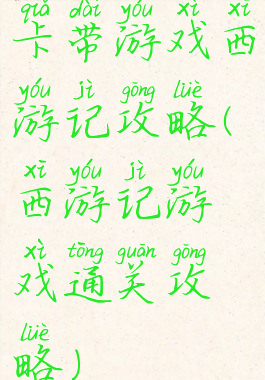 qiǎ dài yóu xì xī
卡带游戏西
yóu jì gōng lüè
游记攻略(
xī yóu jì yóu
西游记游
xì tōng guān gōng
戏通关攻
lüè
略)